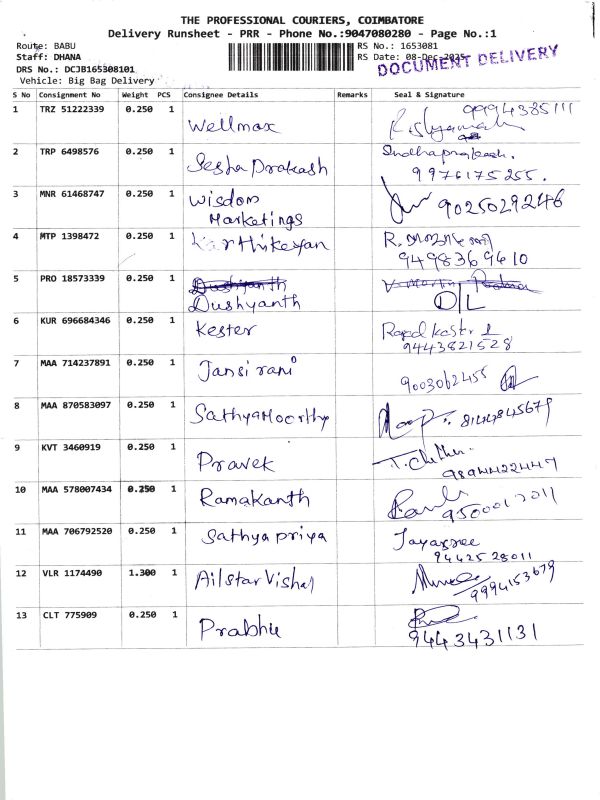 THE PROFESSIONAL COURIERS, COIMBATORE
Delivery Runsheet - PRR - Phone No.:9047080280 - Page No.:1
Route: BABU RS No.: 1653081
Staff: DHANA RS Date: 08-Dec-2025
DOCUMENT DELIVERY
DRS No.: DCJB165308101
Vehicle: Big Bag Delivery
S No Consignment No Weight PCS Consignee Details Remarks Seal & Signature
1 TRZ 51222339 0.250 1 Wellmax 9994385111
2 TRP 6498576 0.250 1 Sesha Prakash Sudhaprakash.
9976175255.
3 MNR 61468747 0.250 1 Wisdom 9025029246
Marketings
4 MTP 1398472 0.250 1 Karthikeyan R.
9498369610
5 PRO 18573339 0.250 1 Dushyanth
Dushyanth D/L
6 KUR 696684346 0.250 1 Kester
9443821528
7 MAA 714237891 0.250 1 Jansi rani 9003062455
8 MAA 870583097 0.250 1 SathyaMoorthy 8144845679
9 KVT 3460919 0.250 1 Pravek
9894422447
10 MAA 578007434 0.250 1 Ramakanth
9500012011
11 MAA 706792520 0.250 1 Sathya priya Jayasree
9442528011
12 VLR 1174490 1.300 1 Ailstar Vishal
9994153679
13 CLT 775909 0.250 1 Prabhu
9443431131